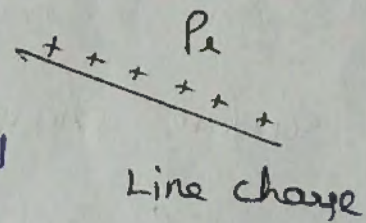 + + + + + +
ρℓ
Line charge